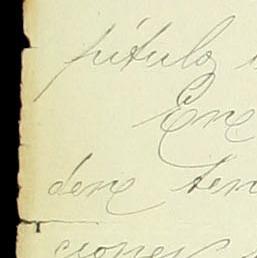 pítulo
Ene
dene ten
ciones